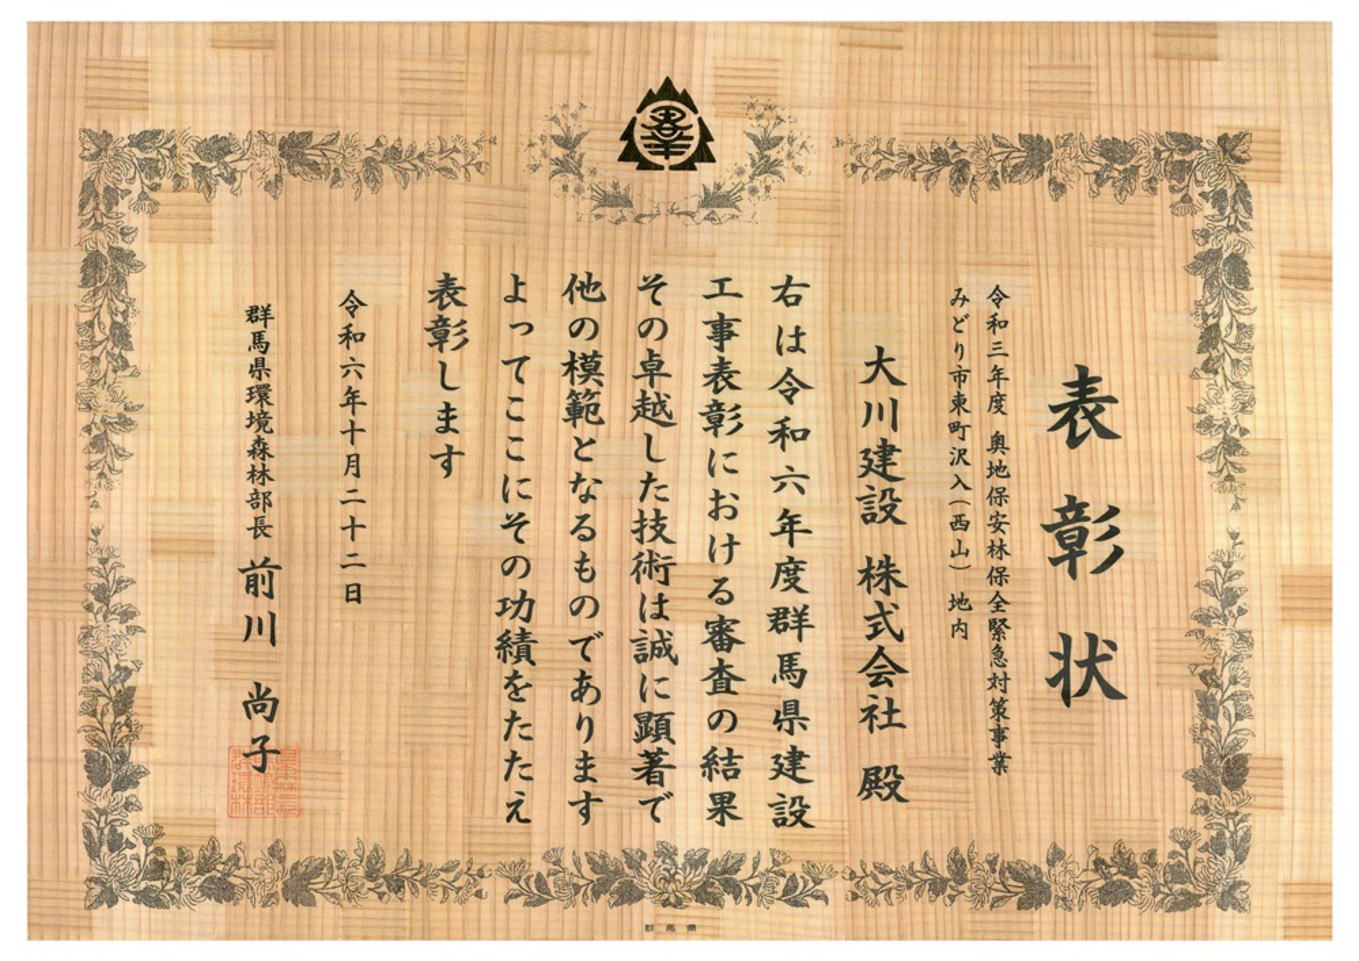 表彰状
令和三年度 奥地保安林保全緊急対策事業
みどり市東町沢入(西山) 地内
大川建設 株式会社 殿
右は令和六年度群馬県建設
工事表彰における審査の結果
その卓越した技術は誠に顕著で
他の模範となるものであります
よってここにその功績をたたえ
表彰します
令和六年十月二十二日
群馬県環境森林部長 前川 尚子
群馬県